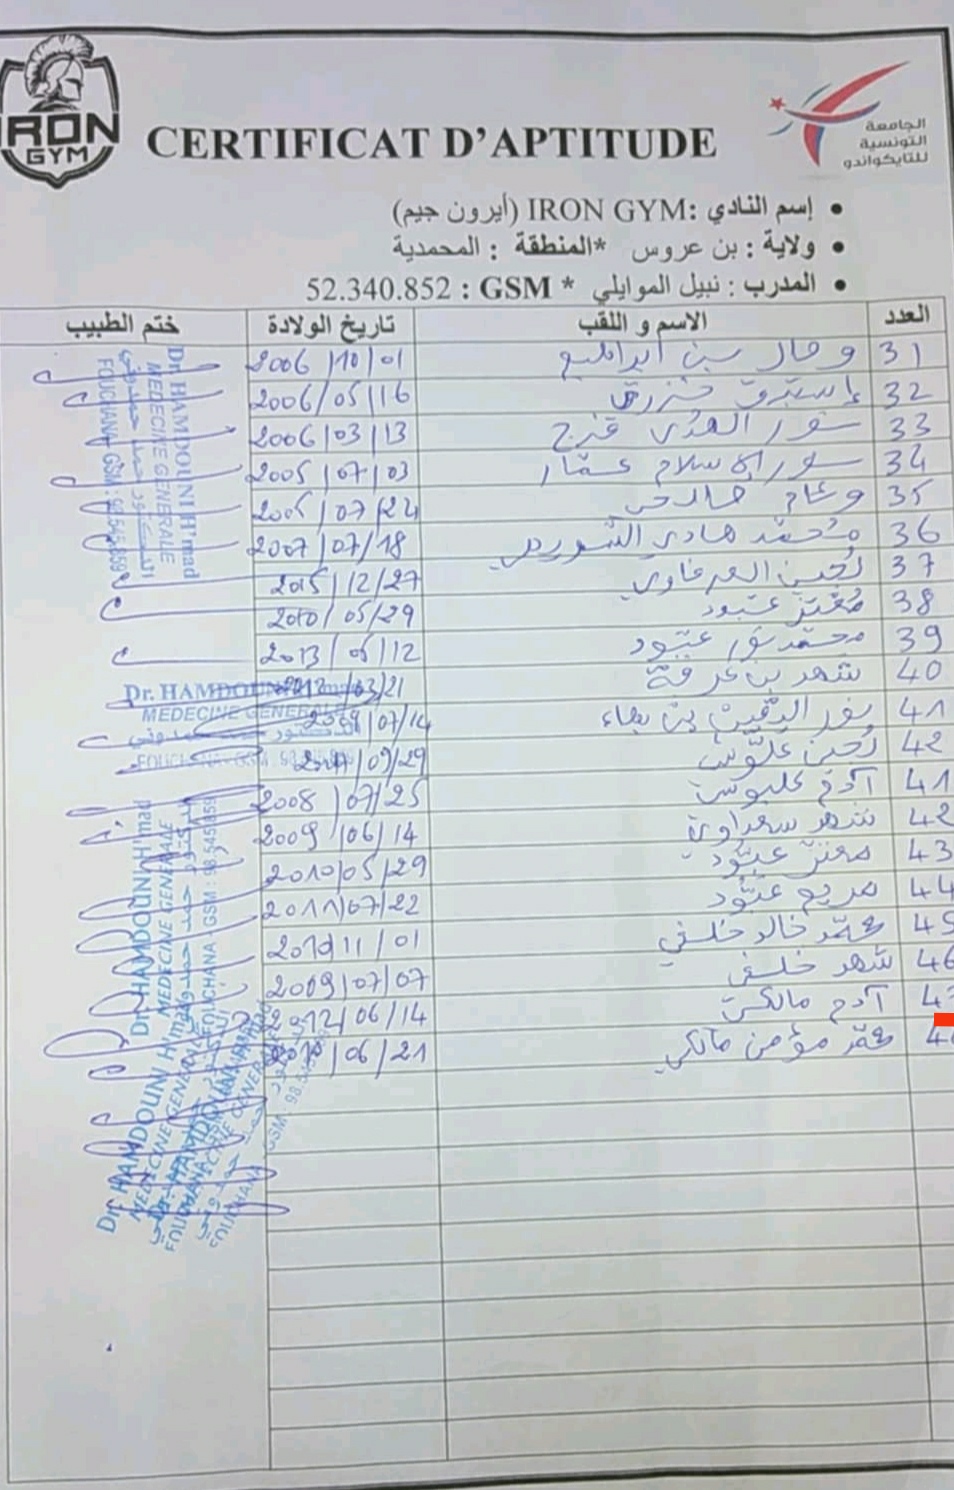 IRON
GYM
CERTIFICAT D'APTITUDE
الجامعة
التونسية
للتايكواندو
• إسم النادي :IRON GYM (أيرون جيم)
• ولاية : بن عروس *المنطقة : المحمدية
• المدرب : نبيل الموايلي * GSM : 52.340.852
العدد الاسم و اللقب تاريخ الولادة ختم الطبيب
31 بن ابراهيم 2006/10/01
32 إستبرق 2006/05/16
33 نور الهدى فرج 2006/03/13
34 نور الاسلام عمّار 2005/07/03
35 وئام 2005/07/24
36 محمّد هادي 2007/07/18
37 لجين العرفاوي 2015/12/27
38 مُعتز عبّود 2010/05/29
39 محمّد نور عبّود 2013/05/12
40 شهد بن عرفة 2012/03/21
41 نور اليقين بن 2009/07/14
42 لُجين علّوش /09/29
41 آدم 2008/07/25
42 شهد سعداوي 2009/06/14
43 معتز عبّود 2010/05/29
44 مريم عبّود 2011/07/22
45 محمّد خالد خلفي 2010/11/01
46 شهد خلفي 2009/07/07
آدم مالكي 2012/06/14
محمّد مؤمن مالكي /06/21
Dr. HAMDOUNI H'mad
MEDECINE GENERALE
الدكتور حمد حمدوني
FOUCHANA - GSM : 98.545.859
Dr. HAMDOUNI H'mad
MEDECINE GENERALE
FOUCHANA - GSM : 98.545.859
Dr. HAMDOUNI H'mad
MEDECINE GENERALE
FOUCHANA - GSM : 98.545.859
Dr. HAMDOUNI H'mad
MEDECINE GENERALE
FOUCHANA